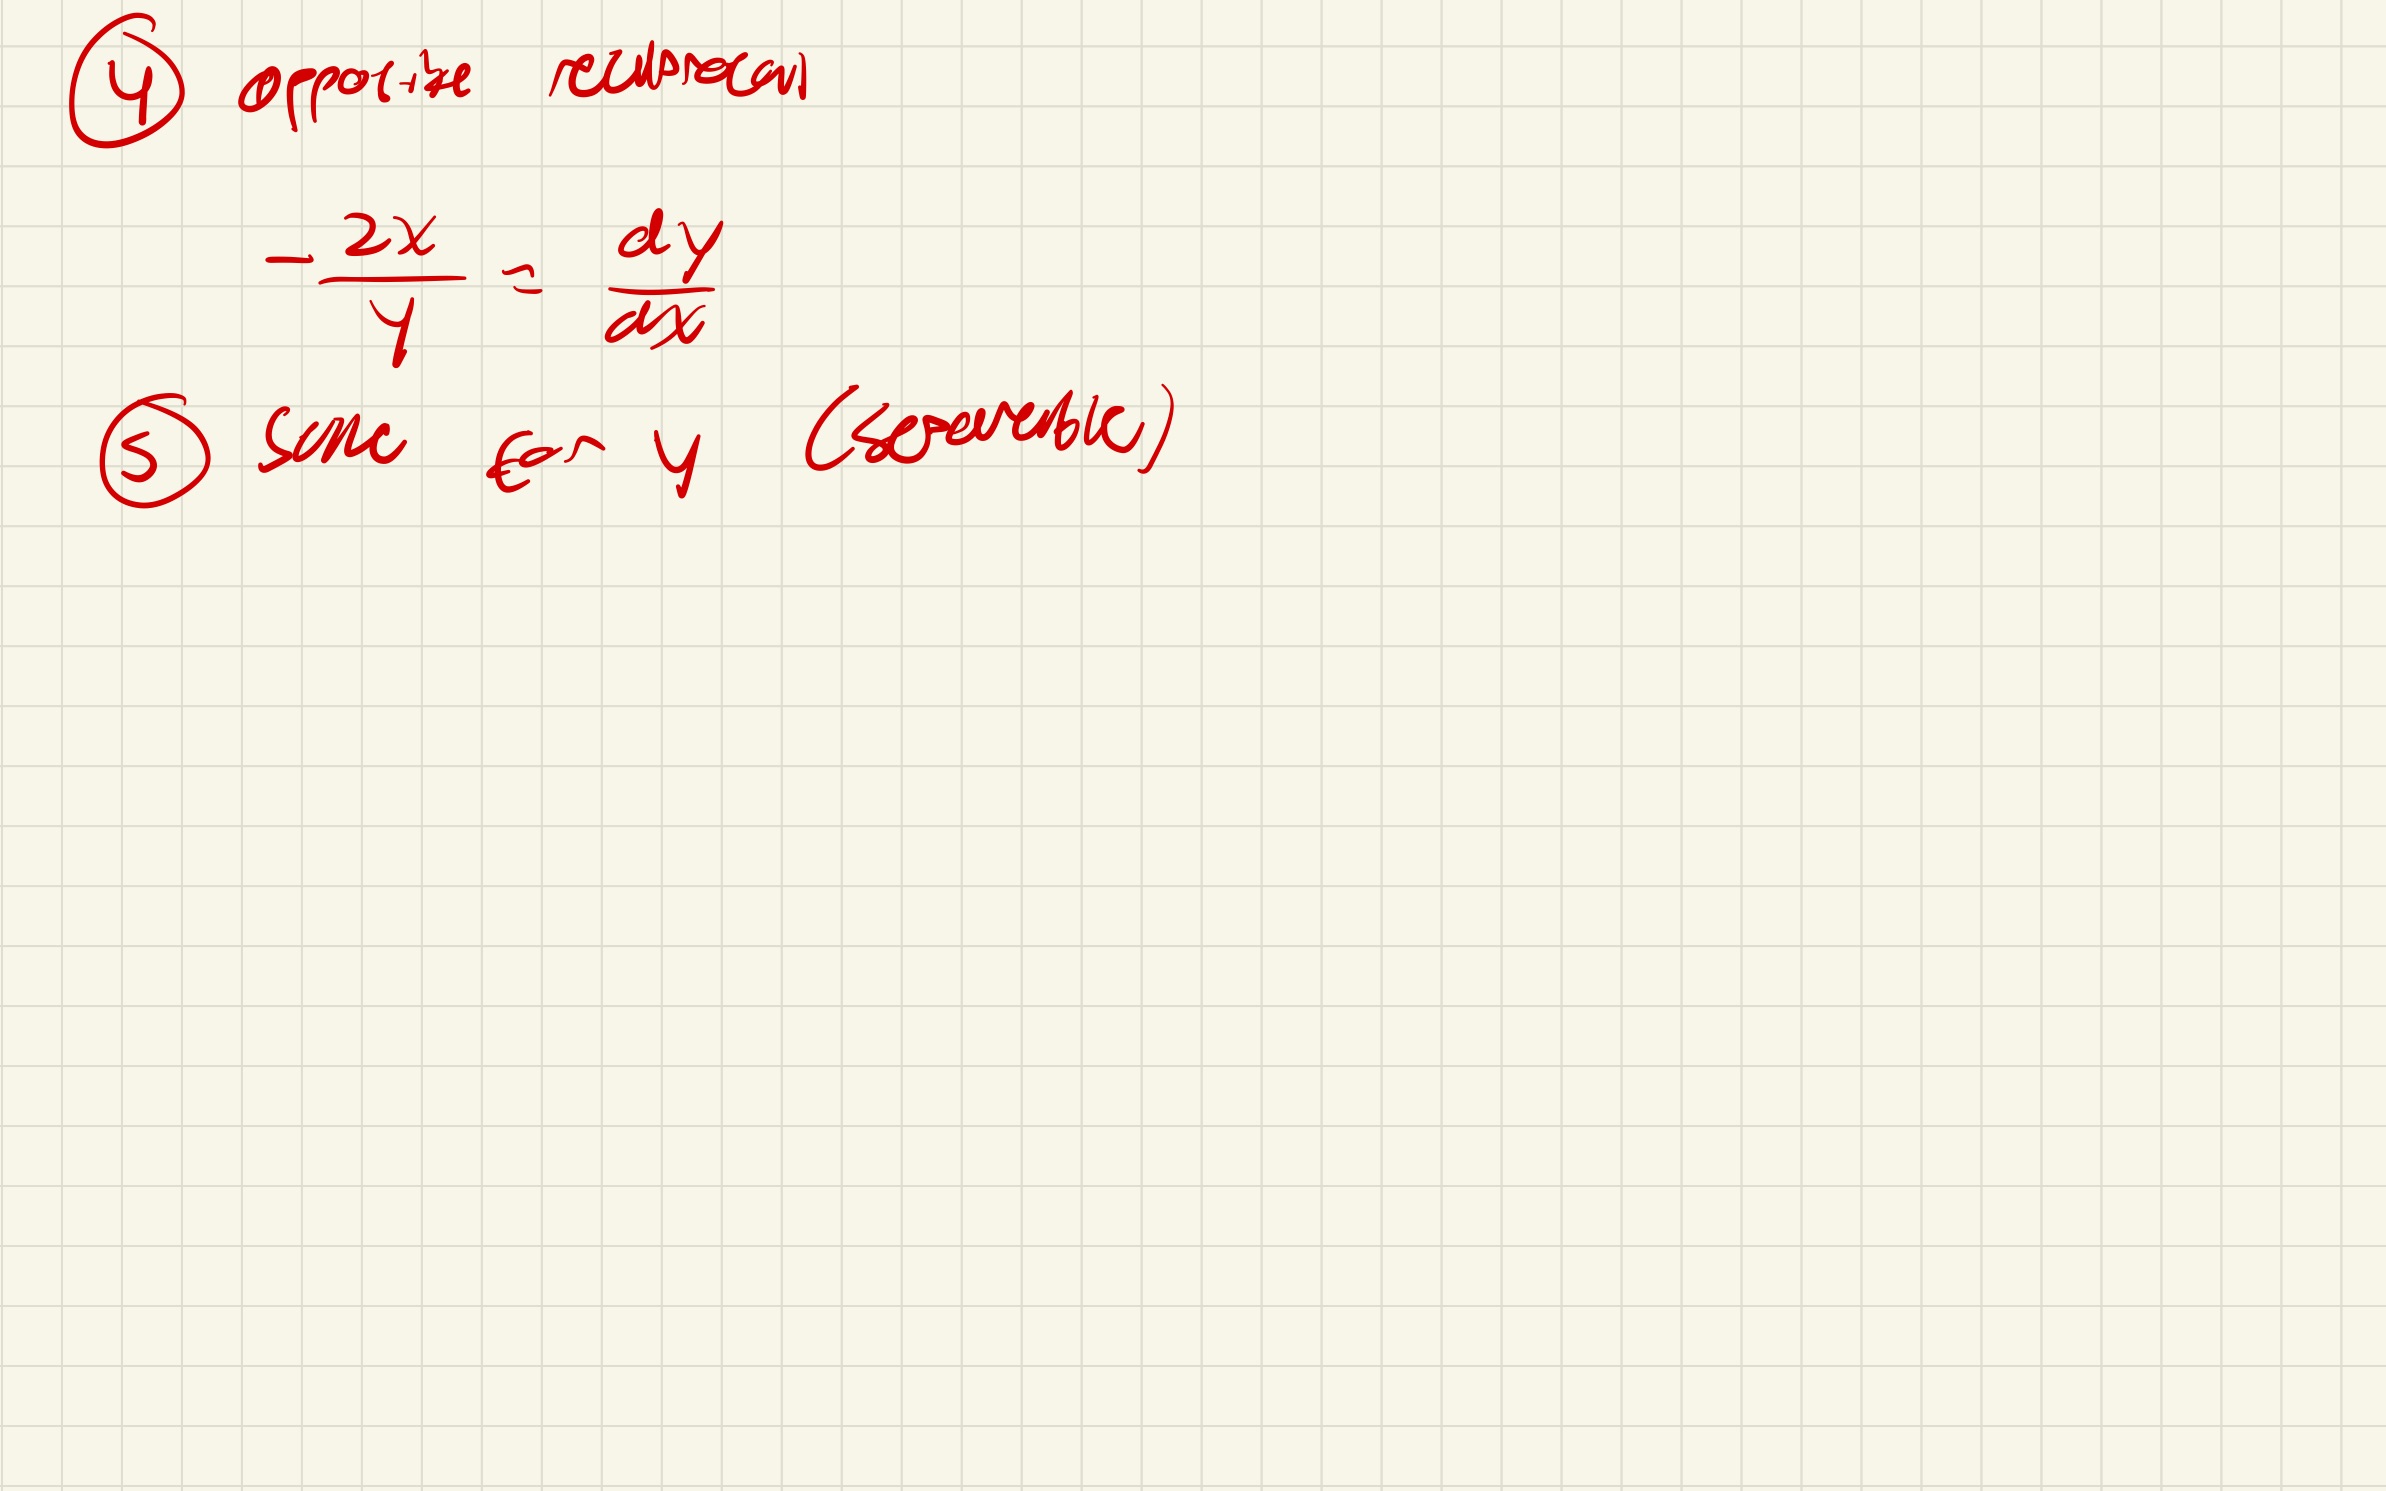 ④ opposite reciprocal
- 2x/y = dy/dx
⑤ Solve for y (separable)